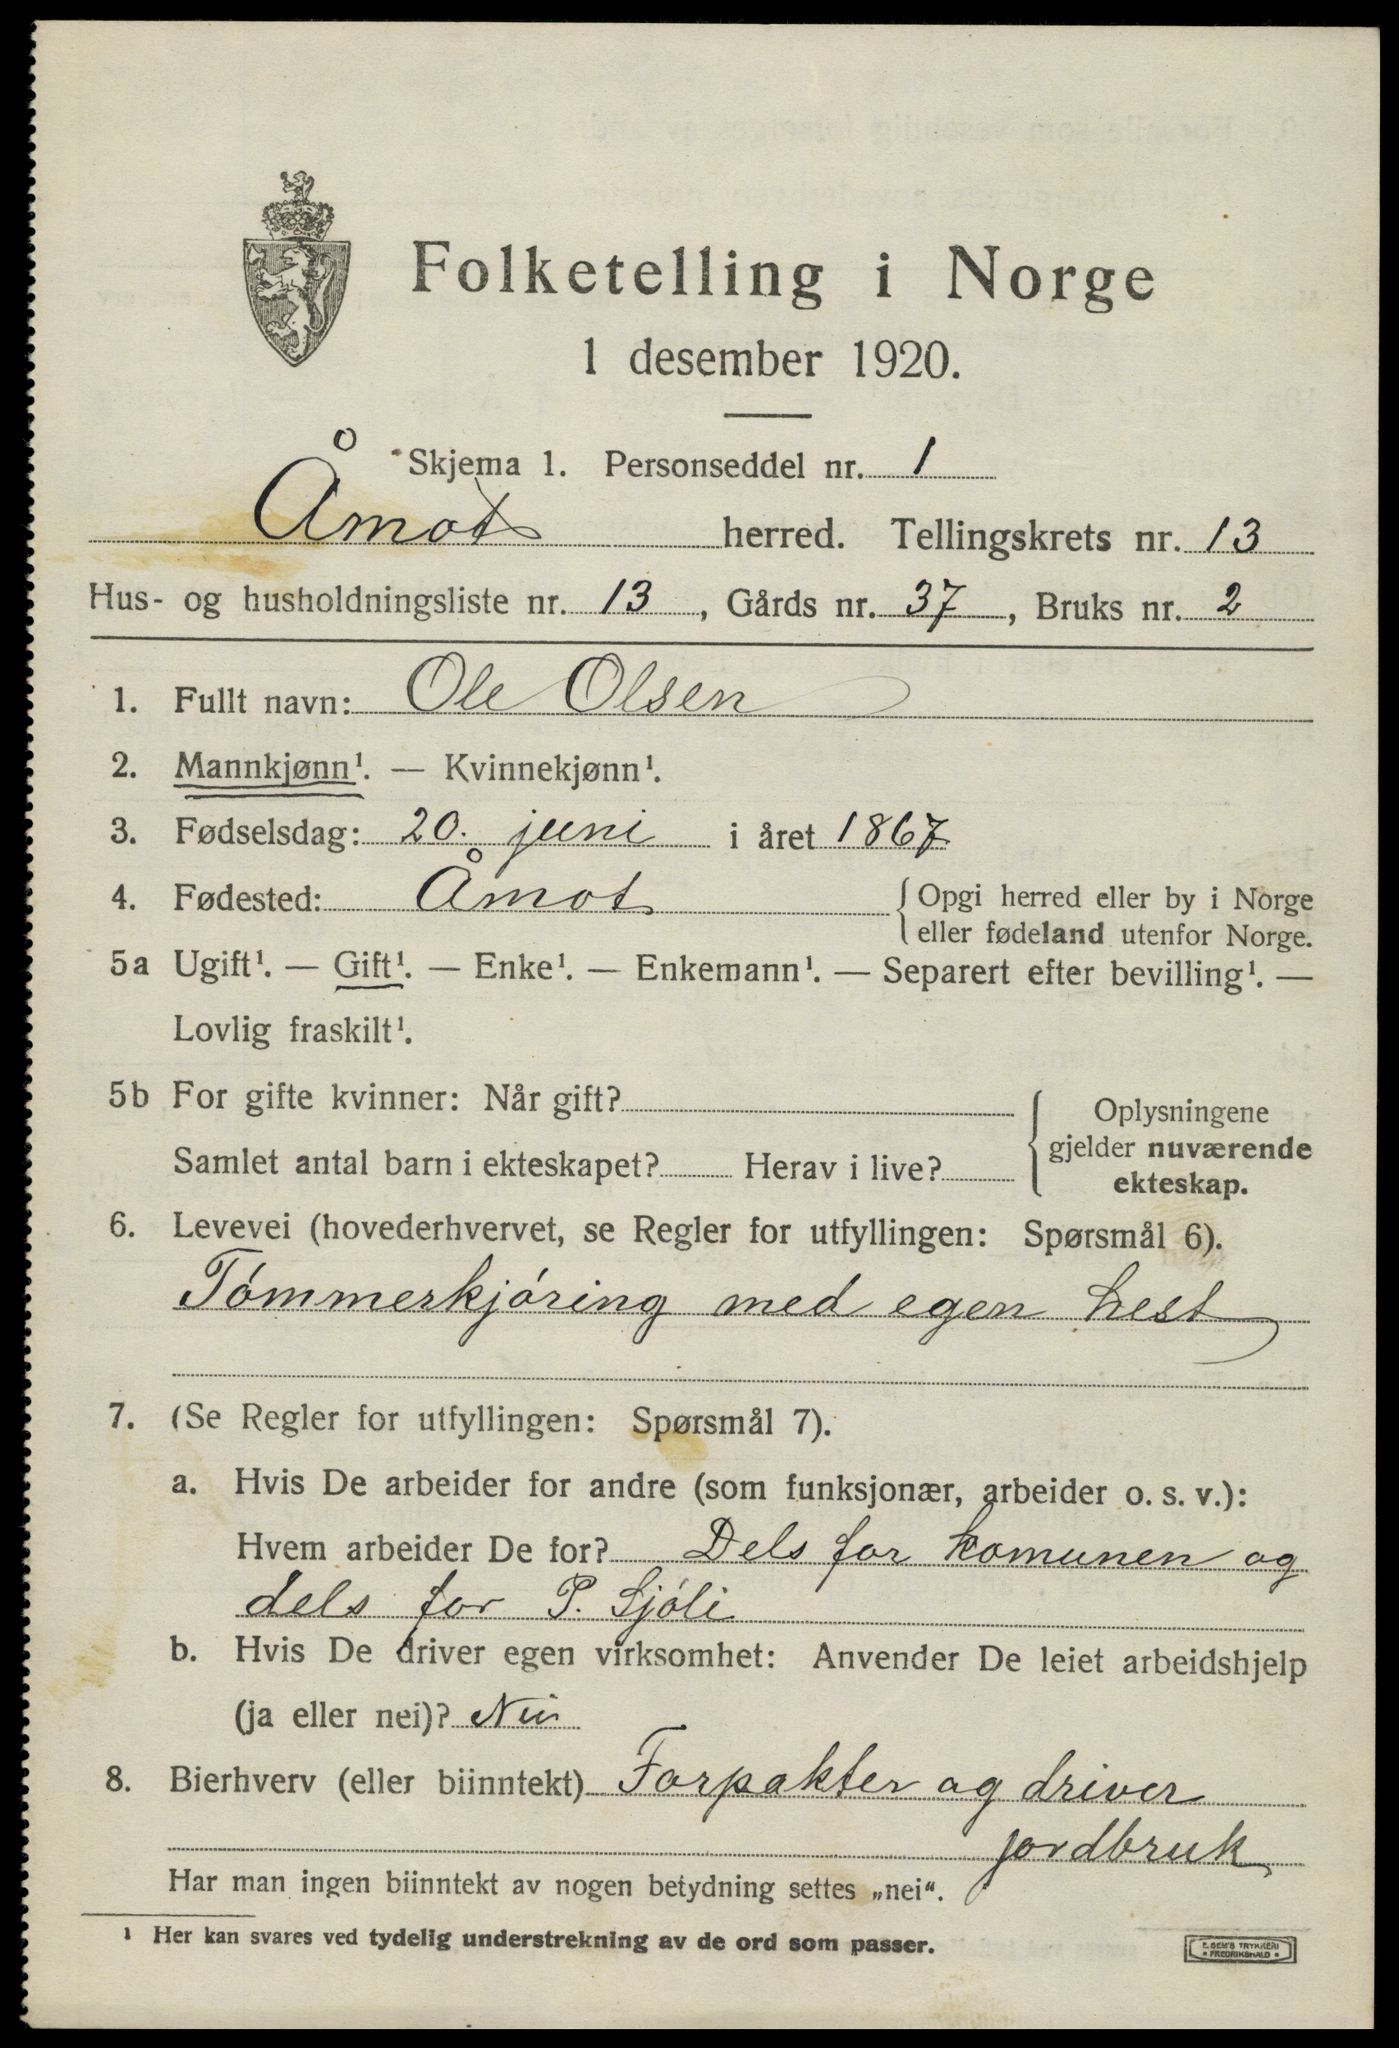 Folketelling i Norge
1 desember 1920.
Skjema 1. Personseddel nr. 1
Åmot herred. Tellingskrets nr. 13
Hus- og husholdningsliste nr. 13, Gårds nr. 37, Bruks nr. 2
1. Fullt navn: Ole Olsen
2. Mannkjønn¹. — Kvinnekjønn¹.
3. Fødselsdag: 20. juni i året 1867
4. Fødested: Åmot { Opgi herred eller by i Norge
eller fødeland utenfor Norge.
5a Ugift¹. — Gift¹. — Enke¹. — Enkemann¹. — Separert efter bevilling¹. —
Lovlig fraskilt¹.
5b For gifte kvinner: Når gift?
Samlet antal barn i ekteskapet? Herav i live?
{ Oplysningene
gjelder nuværende
ekteskap.
6. Levevei (hovederhvervet, se Regler for utfyllingen: Spørsmål 6).
Tómmerkjóring med egen hest
7. (Se Regler for utfyllingen: Spørsmål 7).
a. Hvis De arbeider for andre (som funksjonær, arbeider o. s. v.):
Hvem arbeider De for? Dels for komunen og
dels for P. Sjóli
b. Hvis De driver egen virksomhet: Anvender De leiet arbeidshjelp
(ja eller nei)? Nei
8. Bierhverv (eller biinntekt) Forpakter og driver
jordbruk
Har man ingen biinntekt av nogen betydning settes „nei“.
¹ Her kan svares ved tydelig understrekning av de ord som passer.
E. SEM'S TRYKKERI
• FREDRIKSHALD •